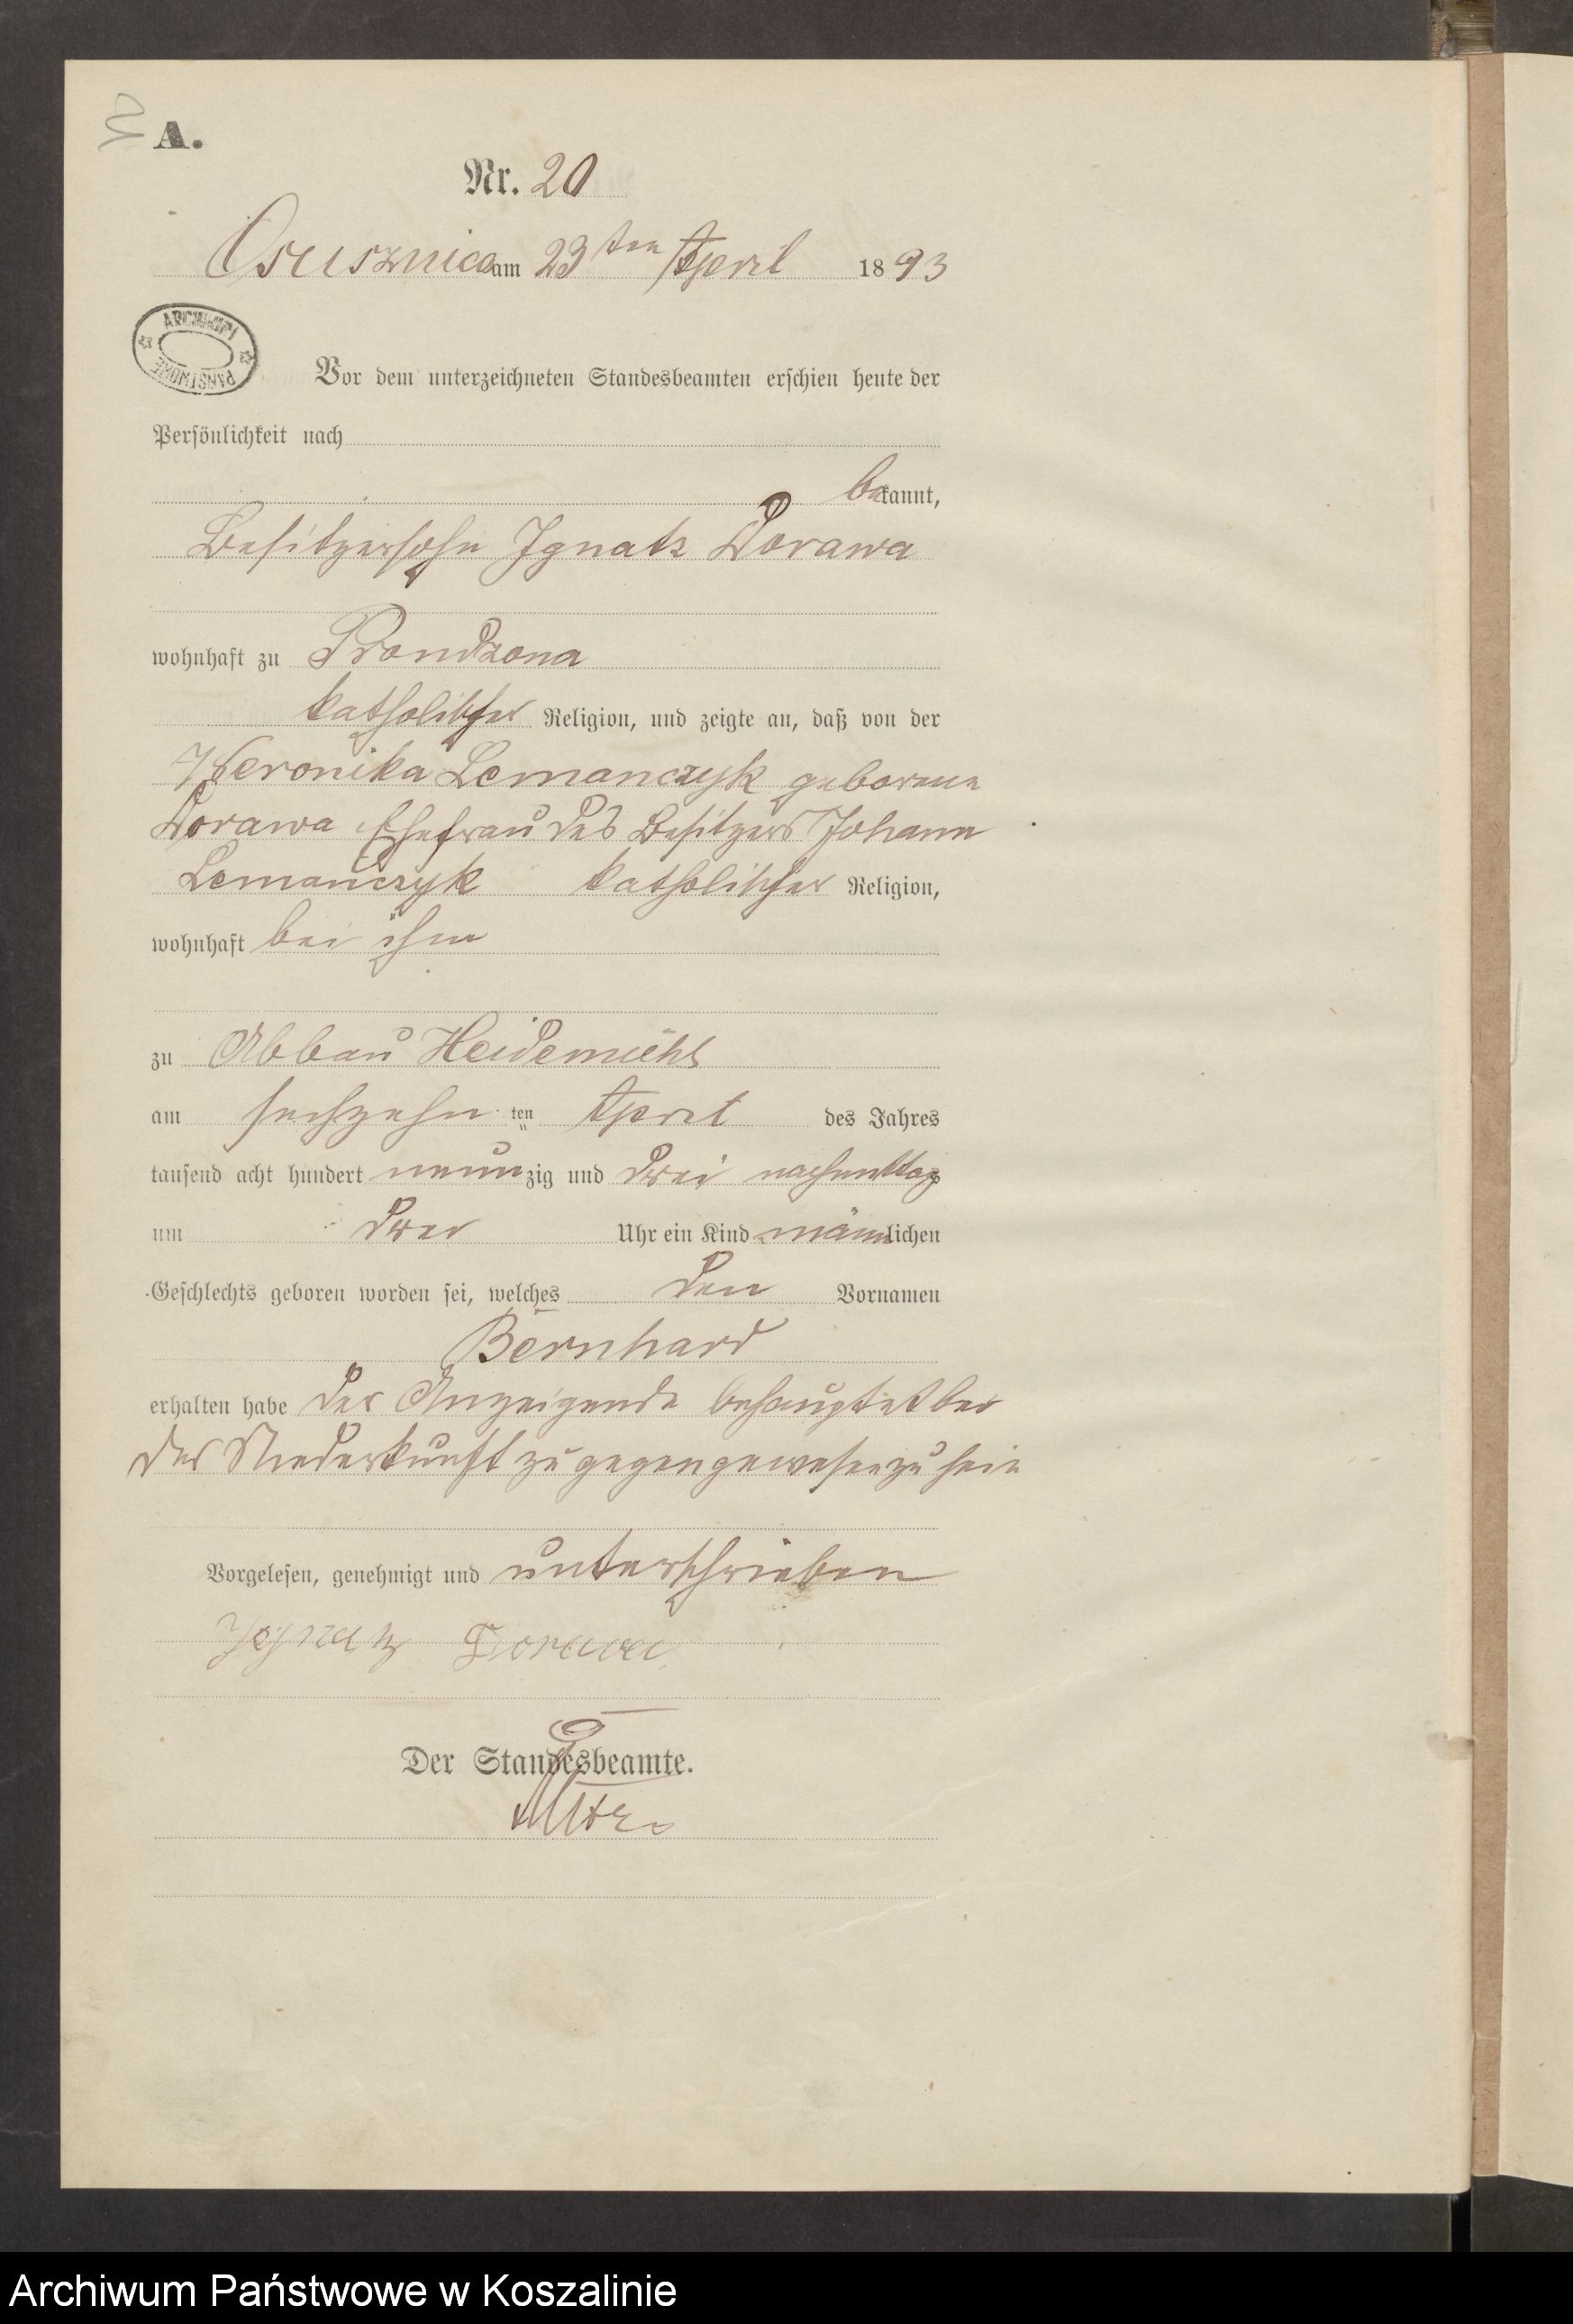 A.
Nr. 20
Osusznica am 23ten April 1893
ARCHIWUM
PAŃSTWOWE
Vor dem unterzeichneten Standesbeamten erschien heute der
Persönlichkeit nach
bekannt,
Besitzersohn Ignatz Dorawa
wohnhaft zu Prondzona
katholischer Religion, und zeigte an, daß von der
Weronika Lemanczyk geborene
Dorawa Ehefrau des Besitzers Johann
Lemanczyk katholischer Religion,
wohnhaft bei ihm
zu Abbau Heidemühl
am sechzehn ten April des Jahres
tausend acht hundert neunzig und drei nachmittag
um drei Uhr ein Kind männlichen
Geschlechts geboren worden sei, welches den Vornamen
Bernhard
erhalten habe der Anzeigende behauptet bei
der Niederkunft zugegen gewesen zu sein
Vorgelesen, genehmigt und unterschrieben
Ignatz Dorawa
Der Standesbeamte.
Archiwum Państwowe w Koszalinie